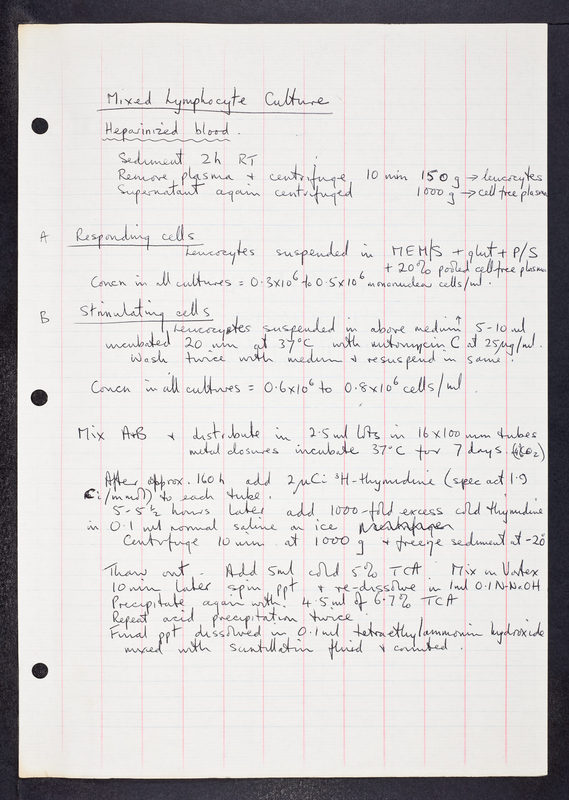 Mixed Lymphocyte Culture
Heparinized blood.
Sediment 2h RT
Remove plasma + centrifuge 10 min 150 g → leucocytes
Supernatant again centrifuged 1000 g → cell free plasma
A Responding cells
Leucocytes suspended in MEM/S + glut + P/S
+ 20% pooled cell free plasma
Concn in all cultures = 0.3x10⁶ to 0.5x10⁶ mononuclear cells/ml.
B Stimulating cells
Leucocytes suspended in above medium 5-10 ml
incubated 20 min at 37°C with mitomycin C at 25µg/ml.
Wash twice with medium + resuspend in same.
Concn in all cultures = 0.6x10⁶ to 0.8x10⁶ cells/ml.
Mix A+B + distribute in 2.5 ml lots in 16x100 mm tubes
metal closures incubate 37°C for 7 days (CO₂)
After approx. 160h add 2µCi ³H-thymidine (spec act 1.9
Ci/mmol) to each tube.
5-5½ hours later add 1000-fold excess cold thymidine
in 0.1 ml normal saline on ice
Centrifuge 10 min at 1000 g + freeze sediment at -20
Thaw out - Add 5ml cold 5% TCA Mix in Vortex
10 min later spin ppt + re-dissolve in 1ml 0.1 N-NaOH
Precipitate again with 4.5 ml of 6.7% TCA
Repeat acid precipitation twice.
Final ppt dissolved in 0.1ml tetraethylammonium hydroxide
mixed with scintillation fluid + counted.